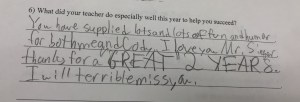 6) What did your teacher do especially well this year to help you succeed?
You have supplied lots and lots of fun and humor
for both me and Cody. I love you Mr.
thanks for a GREAT 2 YEARS.
I will terrible miss you.